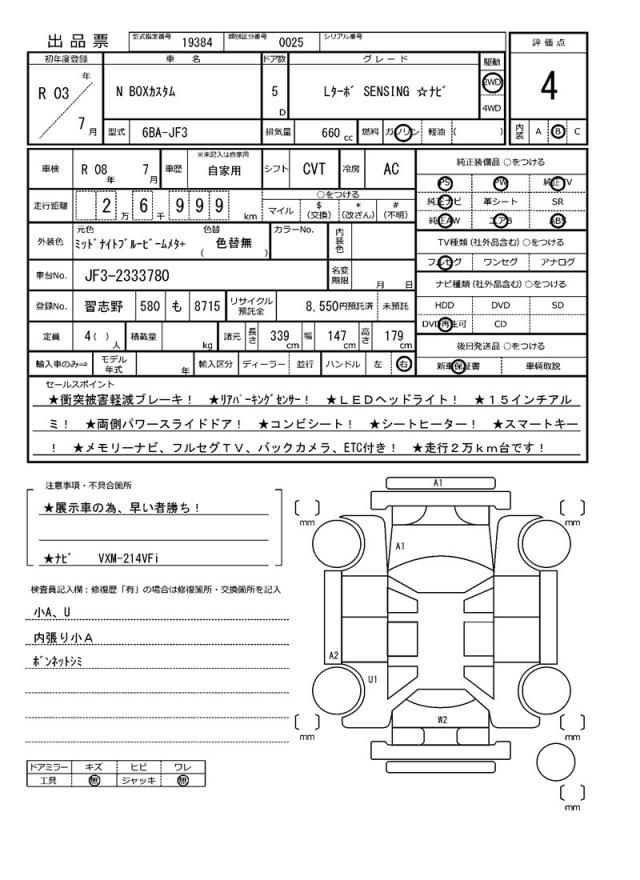 出品票 型式指定番号 19384 類別区分番号 0025 シリアル番号
評価点
初年度登録 車名 ドア数 グレード 駆動
R 03 年 7 月 N BOXカスタム 5 D Lターボ SENSING ☆ナビ 2WD 4WD 4
型式 6BA-JF3 排気量 660 cc 燃料 ガソリン 軽油 ( ) 内装 A B C
車検 R 08 年 7 月 車歴 ※未記入は自家用 自家用 シフト CVT 冷房 AC
走行距離 2 万 6 千 9 9 9 km ○をつける マイル $ (交換) * (改ざん) # (不明)
外装色 元色 ミッドナイトブルービームメタ+ 色替 ( 色替無 ) カラーNo. 内装色
車台No. JF3-2333780 名変期限 月 日
登録No. 習志野 580 も 8715 リサイクル預託金 8,550円預託済 未預託
定員 4( ) 人 積載量 kg 諸元 長さ 339 cm 幅 147 cm 高さ 179 cm
輸入車のみ⇒ モデル年式 年 輸入区分 ディーラー 並行 ハンドル 左 右
純正装備品 ○をつける
PS PW 純正TV
純正ナビ 革シート SR
純正AW エアB ABS
TV種類 (社外品含む) ○をつける
フルセグ ワンセグ アナログ
ナビ種類 (社外品含む) ○をつける
HDD DVD SD
DVD再生可 CD
後日発送品 ○をつける
新車保証書 車輌取説
セールスポイント
★衝突被害軽減ブレーキ! ★リアパーキングセンサー! ★LEDヘッドライト! ★15インチアル
ミ! ★両側パワースライドドア! ★コンビシート! ★シートヒーター! ★スマートキー
! ★メモリーナビ、フルセグTV、バックカメラ、ETC付き! ★走行2万km台です!
注意事項・不具合箇所
★展示車の為、早い者勝ち!
★ナビ VXM-214VFi
検査員記入欄:修復歴「有」の場合は修復箇所・交換箇所を記入
小A、U
内張り小A
ボンネットシミ
ドアミラー キズ ヒビ ワレ
工具 無 ジャッキ 無
A1
[ ] mm [ ] mm
A1
A2
U1
W2
[ ] mm [ ] mm
[ ] mm